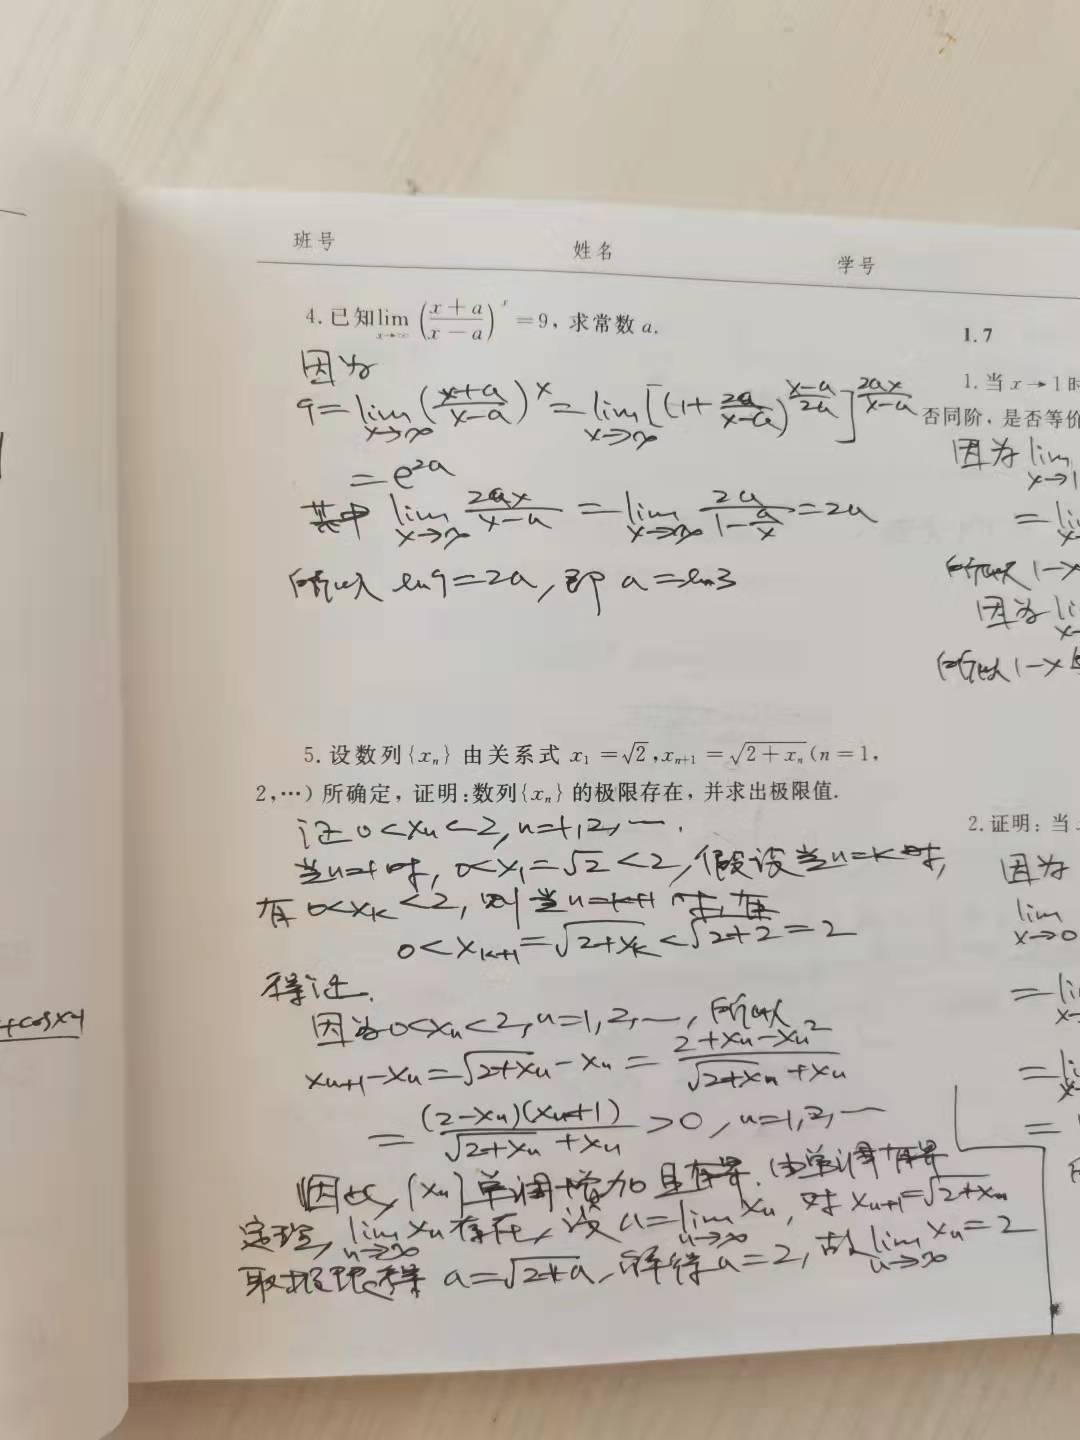 班号 姓名 学号
4.已知lim x→∞ (x+a/x-a)^x =9,求常数 a.
因为
9=lim x→∞ (x+a/x-a)^x = lim x→∞ [(1+2a/x-a)^(x-a/2a)]^(2ax/x-a)
=e^2a
其中 lim x→∞ 2ax/x-a = lim x→∞ 2a/1-a/x =2a
所以 ln9=2a,即 a=ln3
5.设数列{xn}由关系式 x1=√2,xn+1=√2+xn(n=1,
2,…)所确定,证明:数列{xn}的极限存在,并求出极限值.
证 0<xn<2,n=1,2,….
当n=1时,0<x1=√2<2,假设当n=k时,
有0<xk<2,则当n=k+1时,有
0<xk+1=√2+xk<√2+2=2
得证.
因为0<xn<2,n=1,2,…,所以
xn+1-xn=√2+xn-xn=2+xn-xn²/√2+xn+xn
=(2-xn)(xn+1)/√2+xn+xn>0,n=1,2,…
因此,{xn}单调增加且有界.由单调有界
定理,lim n→∞ xn存在,设a=lim n→∞ xn,对xn+1=√2+xn
取极限得 a=√2+a,解得a=2,故lim n→∞ xn=2
+cosx-1
1.7
1.当 x→1时
否同阶,是否等价
因为 lim x→1
=lim x→
所以 1-x
因为 lim x→
所以 1-x
2.证明:当
因为
lim x→0
=lim x→
=lim x→
=